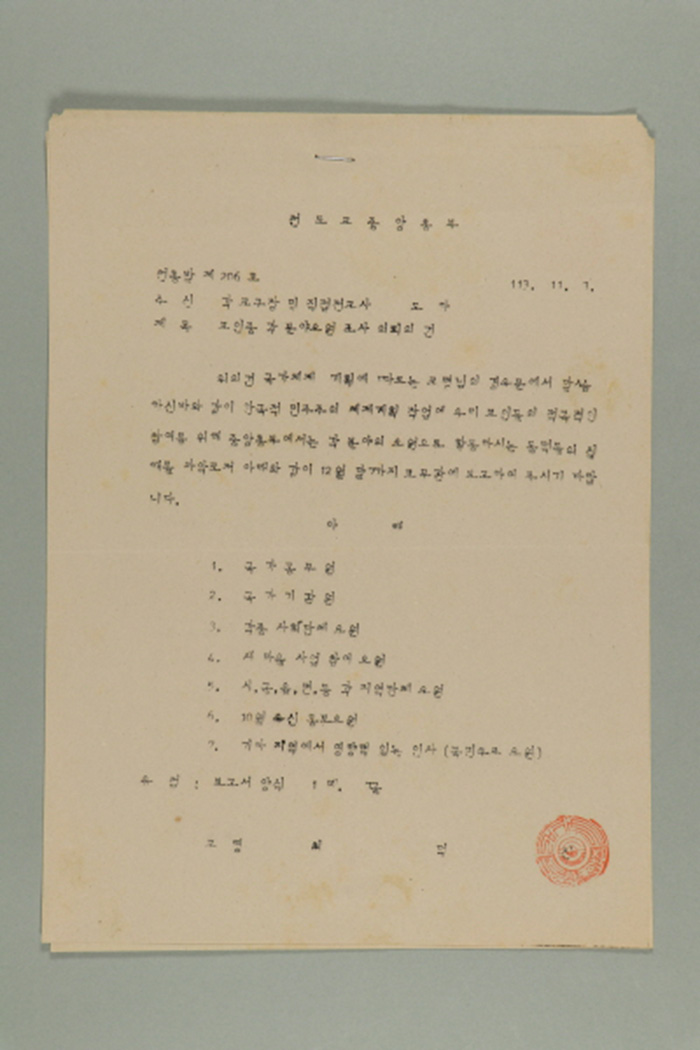 천 도 교 중 앙 총 부
천총발 제 206 호 113. 11. 7.
수 신 각 교구장 및 직접전교사
제 목 교인중 각 분야요원 조사 의뢰의 건
위의건 국가체제 계획에 따르는 교령님의 경유문에서 말씀
하신바와 같이 한국적 민주주의 체제계획 작업에 우리 교인들의 적극적인
참여를 위해 중앙총부에서는 각 분야의 요원으로 활동하시는 동덕들의 실
태를 파악코저 아래와 같이 12월 말까지 교무관에 보고하여 주시기 바랍
니다.
아 래
1. 국 가 공 무 원
2. 국 가 기 관 원
3. 각종 사회단체 요원
4. 새 마을 사업 참여 요원
5. 시,군,읍,면,동 각 지역단체 요원
6. 10월 유신 홍보요원
7. 기타 지역에서 영향력 있는 인사 ( 요원)
유 첨 : 보고서 양식 1 매. 끝
교 령 최